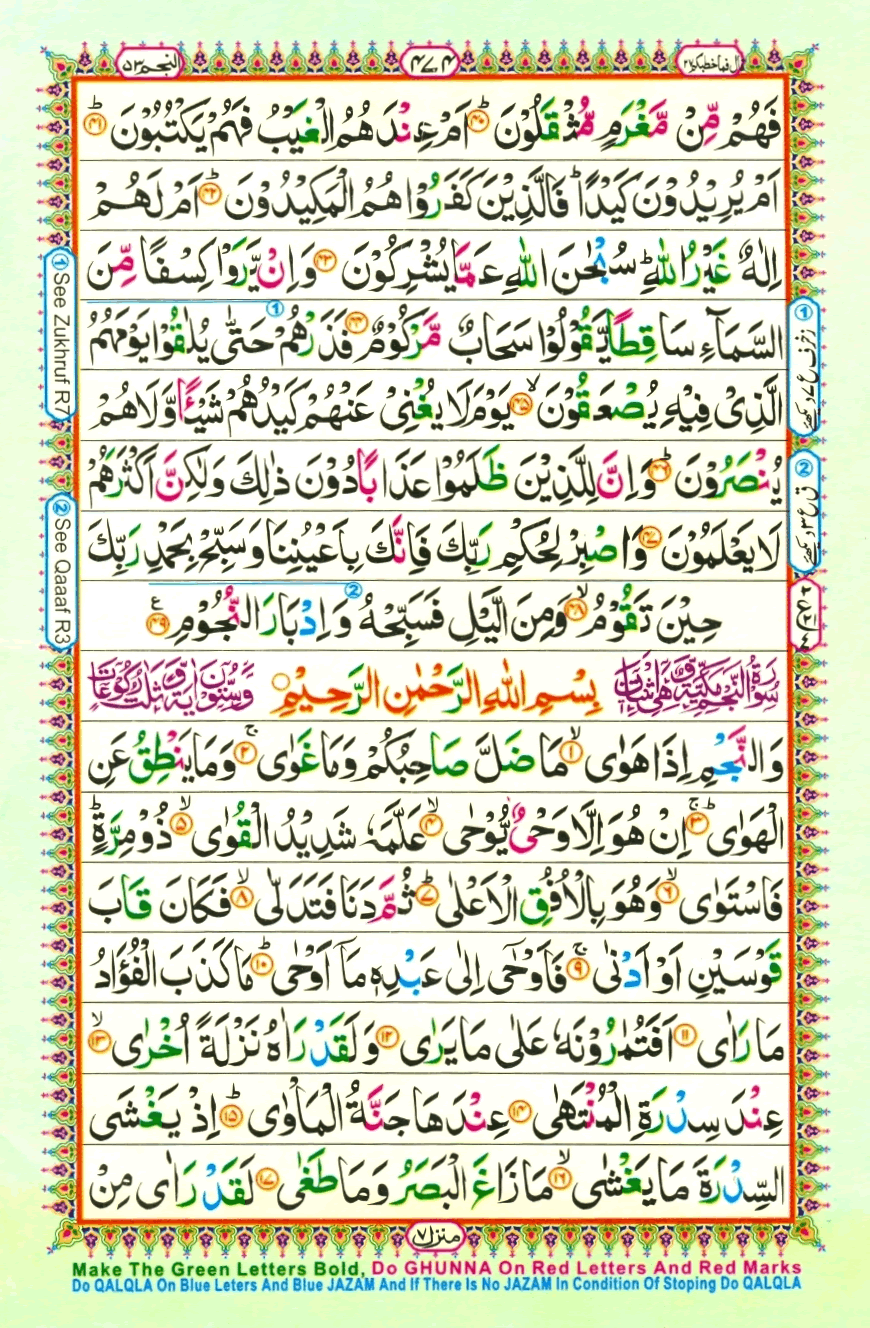 قال فما خطبكم ٢٧
٤٧٤
النجم ٥٣
فَهُمْ مِّنْ مَّغْرَمٍ مُّثْقَلُوْنَ ؕ‏﴿۴۰﴾ اَمْ عِنْدَهُمُ الْغَيْبُ فَهُمْ يَكْتُبُوْنَ ؕ‏﴿۴۱﴾
اَمْ يُرِيْدُوْنَ كَيْدًا ؕ فَالَّذِيْنَ كَفَرُوْا هُمُ الْمَكِيْدُوْنَ ؕ‏﴿۴۲﴾ اَمْ لَهُمْ
اِلٰهٌ غَيْرُ اللّٰهِ ؕ سُبْحٰنَ اللّٰهِ عَمَّا يُشْرِكُوْنَ ﴿۴۳﴾ وَاِنْ يَّرَوْا كِسْفًا مِّنَ
السَّمَآءِ سَاقِطًا يَّقُوْلُوْا سَحَابٌ مَّرْكُوْمٌ ﴿۴۴﴾ فَذَرْهُمْ حَتّٰى يُلٰقُوْا يَوْمَهُمُ
الَّذِىْ فِيْهِ يُصْعَقُوْنَ ۙ‏﴿۴۵﴾ يَوْمَ لَا يُغْنِىْ عَنْهُمْ كَيْدُهُمْ شَيْـًٔا وَّلَا هُمْ
يُنْصَرُوْنَ ؕ‏﴿۴۶﴾ وَاِنَّ لِلَّذِيْنَ ظَلَمُوْا عَذَابًا دُوْنَ ذٰلِكَ وَلٰكِنَّ اَكْثَرَهُمْ
لَا يَعْلَمُوْنَ ﴿۴۷﴾ وَاصْبِرْ لِحُكْمِ رَبِّكَ فَاِنَّكَ بِاَعْيُنِنَا وَسَبِّحْ بِحَمْدِ رَبِّكَ
حِيْنَ تَقُوْمُ ۙ‏﴿۴۸﴾ وَمِنَ الَّيْلِ فَسَبِّحْهُ وَاِدْبَارَ النُّجُوْمِ ﴿۴۹﴾
سُوْرَةُ النَّجْمِ مَكِّيَّةٌ وَّهِىَ اثْنَتَانِ بِسْمِ اللّٰهِ الرَّحْمٰنِ الرَّحِيْمِ وَّسِتُّوْنَ اٰيَةً وَّثَلٰثُ رُكُوْعَاتٍ
وَالنَّجْمِ اِذَا هَوٰى ۙ‏﴿۱﴾ مَا ضَلَّ صَاحِبُكُمْ وَمَا غَوٰى ۚ‏﴿۲﴾ وَمَا يَنْطِقُ عَنِ
الْهَوٰى ؕ‏﴿۳﴾ اِنْ هُوَ اِلَّا وَحْىٌ يُّوْحٰى ۙ‏﴿۴﴾ عَلَّمَهٗ شَدِيْدُ الْقُوٰى ۙ‏﴿۵﴾ ذُوْ مِرَّةٍ ؕ
فَاسْتَوٰى ۙ‏﴿۶﴾ وَهُوَ بِالْاُفُقِ الْاَعْلٰى ؕ‏﴿۷﴾ ثُمَّ دَنَا فَتَدَلّٰى ۙ‏﴿۸﴾ فَكَانَ قَابَ
قَوْسَيْنِ اَوْ اَدْنٰى ۚ‏﴿۹﴾ فَاَوْحٰٓى اِلٰى عَبْدِهٖ مَاۤ اَوْحٰى ؕ‏﴿۱۰﴾ مَا كَذَبَ الْفُؤَادُ
مَا رَاٰى ﴿۱۱﴾ اَفَتُمٰرُوْنَهٗ عَلٰى مَا يَرٰى ﴿۱۲﴾ وَلَقَدْ رَاٰهُ نَزْلَةً اُخْرٰى ۙ‏﴿۱۳﴾
عِنْدَ سِدْرَةِ الْمُنْتَهٰى ﴿۱۴﴾ عِنْدَهَا جَنَّةُ الْمَاْوٰى ؕ‏﴿۱۵﴾ اِذْ يَغْشَى
السِّدْرَةَ مَا يَغْشٰى ۙ‏﴿۱۶﴾ مَا زَاغَ الْبَصَرُ وَمَا طَغٰى ﴿۱۷﴾ لَقَدْ رَاٰى مِنْ
① See Zukhruf R7
② See Qaaaf R3
① زخرف ع ٧ دیکھئے
② ق ع ٣ دیکھئے
منزل ٧
Make The Green Letters Bold, Do GHUNNA On Red Letters And Red Marks
Do QALQLA On Blue Leters And Blue JAZAM And If There Is No JAZAM In Condition Of Stoping Do QALQLA